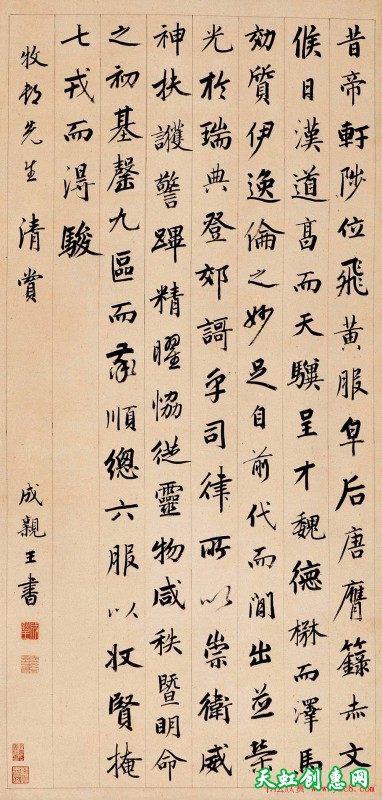 昔帝軒陟位飛黄服皁后唐膺籙赤文
候日漢道高而天驥呈才魏德楙而澤馬
効質伊逸倫之妙足自前代而間出並榮
光於瑞典登郊謌乎司律所以崇衛威
神扶護警蹕精曜恊從靈物咸秩暨明命
之初基罄九區而率順總六服以收賢掩
七戎而得駿
牧邨先生 清賞
成親王書
天虹创惠网